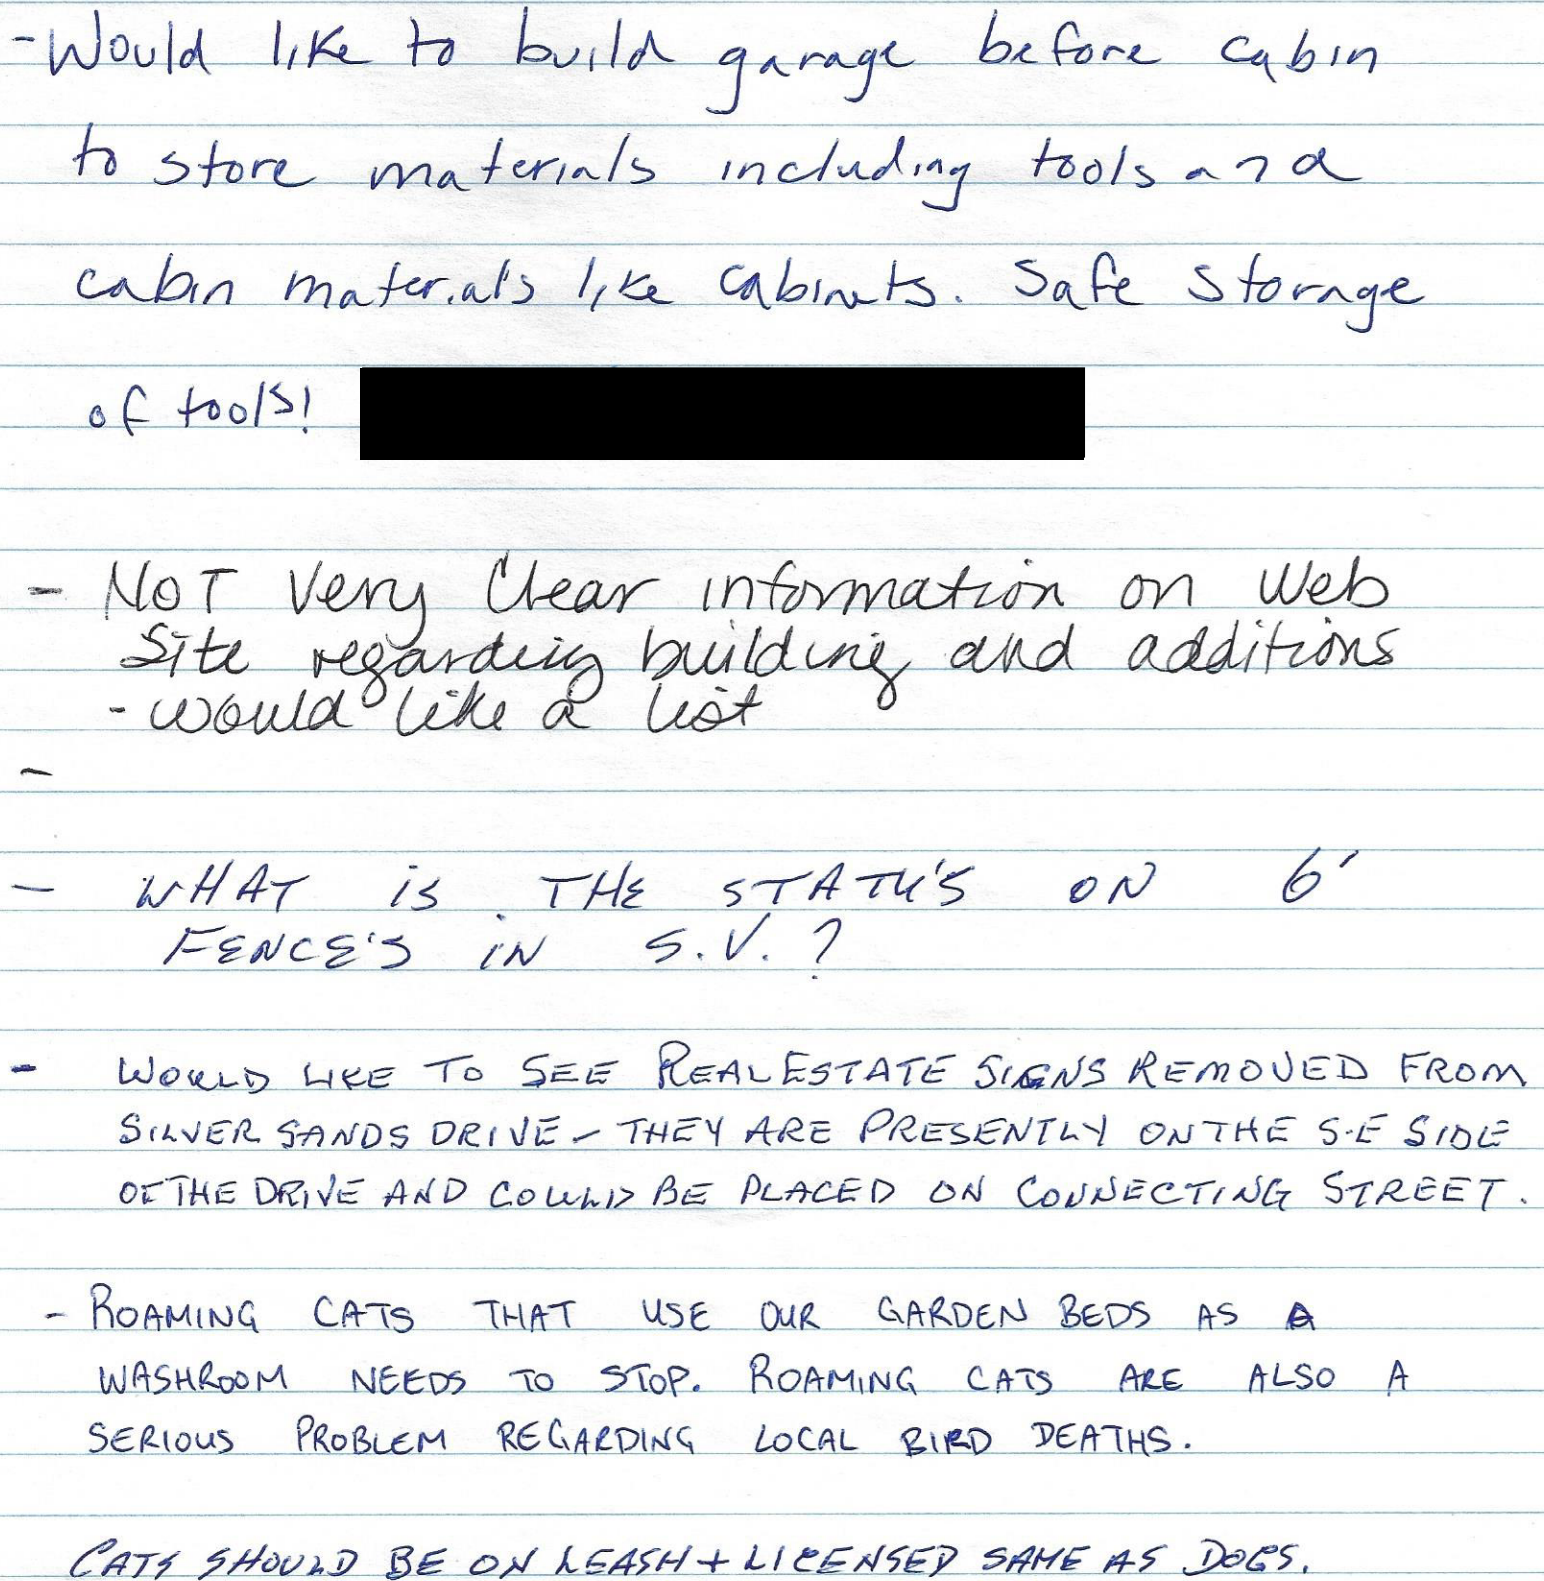 - Would like to build garage before cabin
to store materials including tools and
cabin materials like cabinets. Safe storage
of tools!
- NOT Very Clear information on Web
Site regarding building and additions
- would like a list
-
- WHAT is THE STATU'S ON 6'
FENCE'S iN S.V.?
- WOULD LIKE TO SEE REAL ESTATE SIGNS REMOVED FROM
SILVER SANDS DRIVE - THEY ARE PRESENTLY ON THE S-E SIDE
OF THE DRIVE AND COULD BE PLACED ON CONNECTING STREET.
- ROAMING CATS THAT USE OUR GARDEN BEDS AS A
WASHROOM NEEDS TO STOP. ROAMING CATS ARE ALSO A
SERIOUS PROBLEM REGARDING LOCAL BIRD DEATHS.
CATS SHOULD BE ON LEASH + LICENSED SAME AS DOGS.